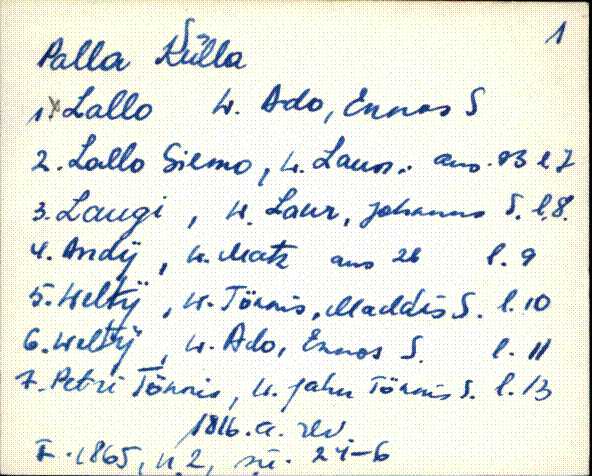 1
Palla Külla
1 x Lallo W. Ado, Ennos S
2. Lallo Siemo, W. Laur. aus. 83 l 7
3. Laugi, W. Laur, Johanns S. l. 8.
4. Andÿ, W. Matz aus 26 l. 9
5. Weltÿ, W. Tönnis, Maddis S. l. 10
6. Weltÿ, W. Ado, Ennos S. l. 11
7. Petri Tönnis, W. Jahn Tönnis S. l. 13
1816. a. rev
F. 1865, n. 2, sü. 24-6